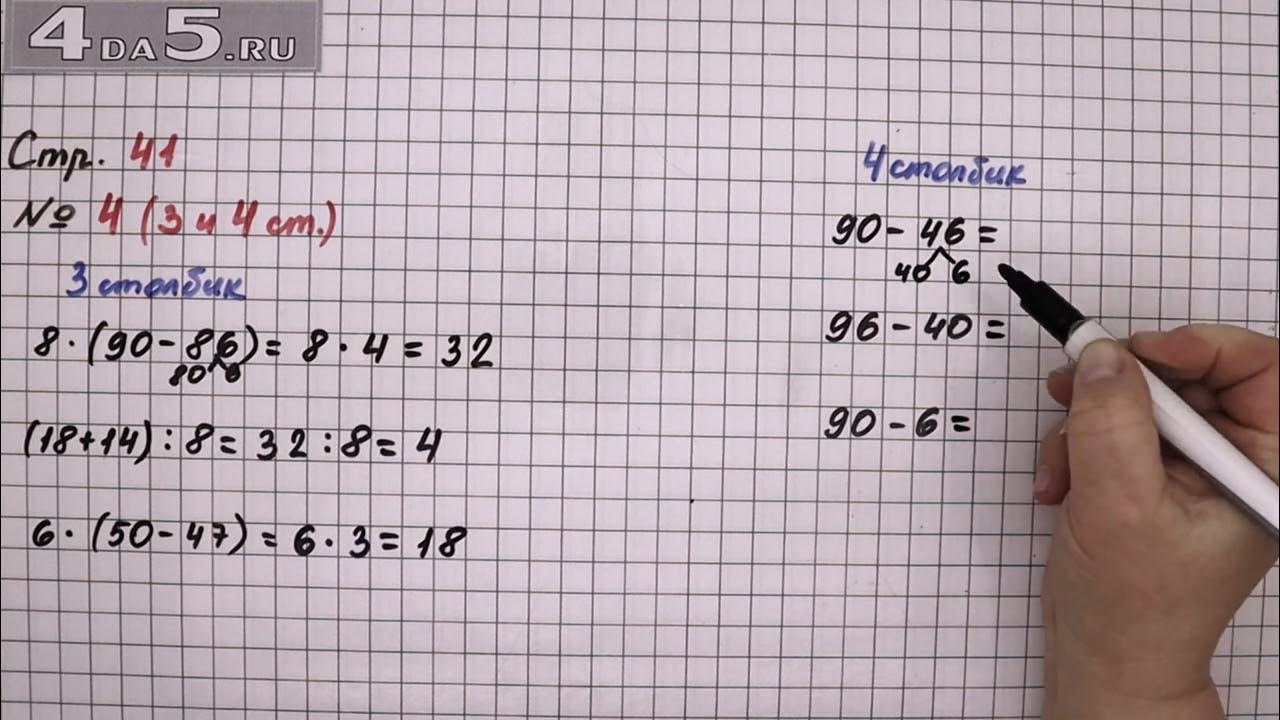 4DA5.RU
Стр. 41
№ 4 (3 и 4 ст.)
3 столбик
8 · (90 - 86) = 8 · 4 = 32
80 6
(18+14) : 8 = 32 : 8 = 4
6 · (50 - 47) = 6 · 3 = 18
4 столбик
90 - 46 =
40 6
96 - 40 =
90 - 6 =